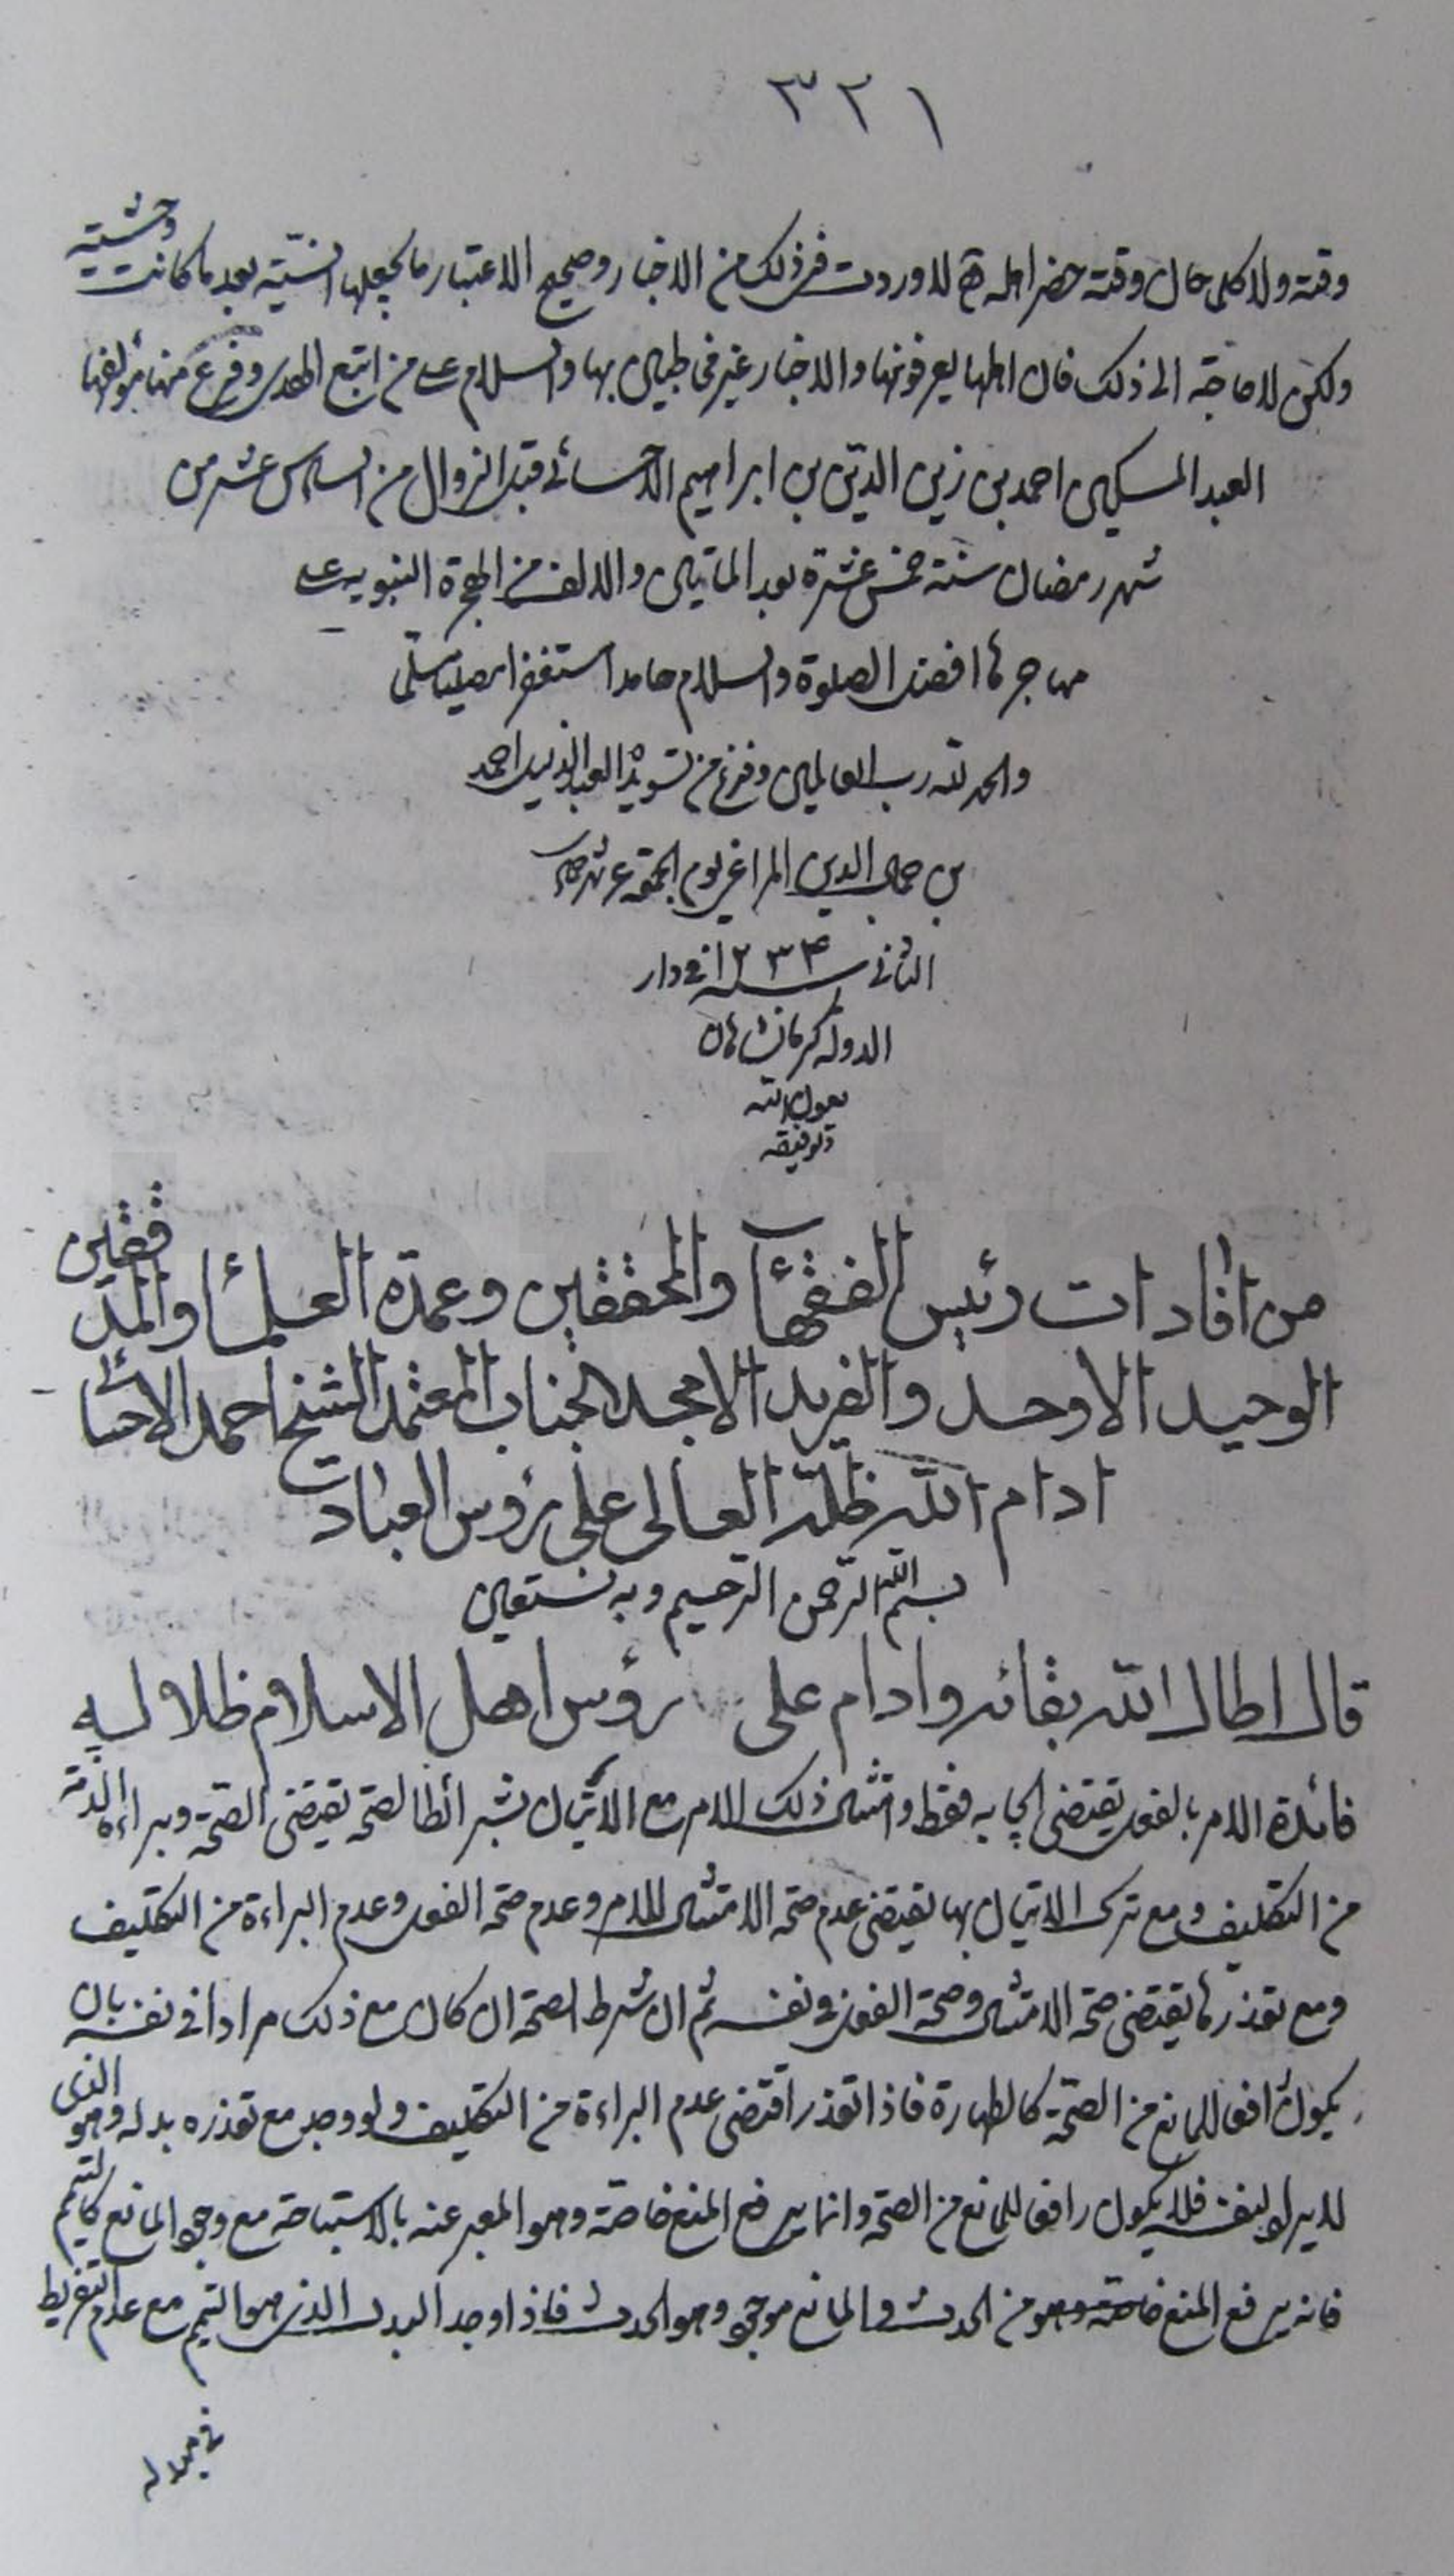 ٣٢١
وقته ولا كلما حان وقته حضر اهله لاوردت في ذلك من الاخبار وصحيح الاعتبار ما يجعلها انسيّة بعد ما كانت وحشيّة
ولكن لا حاجة الى ذلك فان اهلها يعرفونها والاخبار غير بها والسلام على من اتبع الهدى وفرغ منها مؤلفها
العبد المسكين احمد بن زين الدين بن ابراهيم الاحسائي قبل الزوال من السادس عشر من
شهر رمضان سنة خمس عشرة بعد الماتين والالف من الهجرة النبويه على
مهاجرها افضل الصلوة والسلام حامدا مستغفرا مصليا مسلما
والحمد لله رب العالمين وفرغ من تسويده العبد الذليل احمد
بن جمال الدين المراغي يوم الجمعة
الثاني سنه ١٢٣٤ في دار
الدولة كرمانشاهان
بعون الله
وتوفيقه
من افادات رئيس الفقهآء والمحققين وعمدة العلمآء والمدققين
الوحيد الاوحد والفريد الامجد الجناب المعتمد الشيخ احمد الاحسائي
ادام الله ظله العالى على رؤس العباد
بسم الله الرحمن الرحيم وبه نستعين
قال اطال الله بقائه وادام على رؤس اهل الاسلام ظلاله
فائدة الامر بالفعل يقتضى ايجابه فقط وامتثال ذلك الامر مع الاتيان بشرائط الصحة يقتضى الصحة وبراءة الذمة
من التكليف ومع ترك الاتيان بها يقتضى عدم صحة الامتثال للامر وعدم صحة الفعل وعدم البراءة من التكليف
ومع تعذرها يقتضى صحة الامتثال وصحة الفعل في نفسه ثم ان شرط الصحة ان كان مع ذلك مرادا في نفسه بان
يكون رافعا للمانع من الصحة كالطهارة فاذا تعذر اقتضى عدم البراءة من التكليف ولو وجد مع تعذره بدله وهو الذى
لا يراد لنفسه فلا يكون رافعا للمانع من الصحة وانما يرفع المنع خاصة وهو المعبر عنه بالاستباحة مع وجود المانع كالتيمم
فانه يرفع المنع خاصة وهو من الحدث والمانع موجود وهو الحدث فاذا وجد البدل الذى هو التيمم مع عدم التفريط